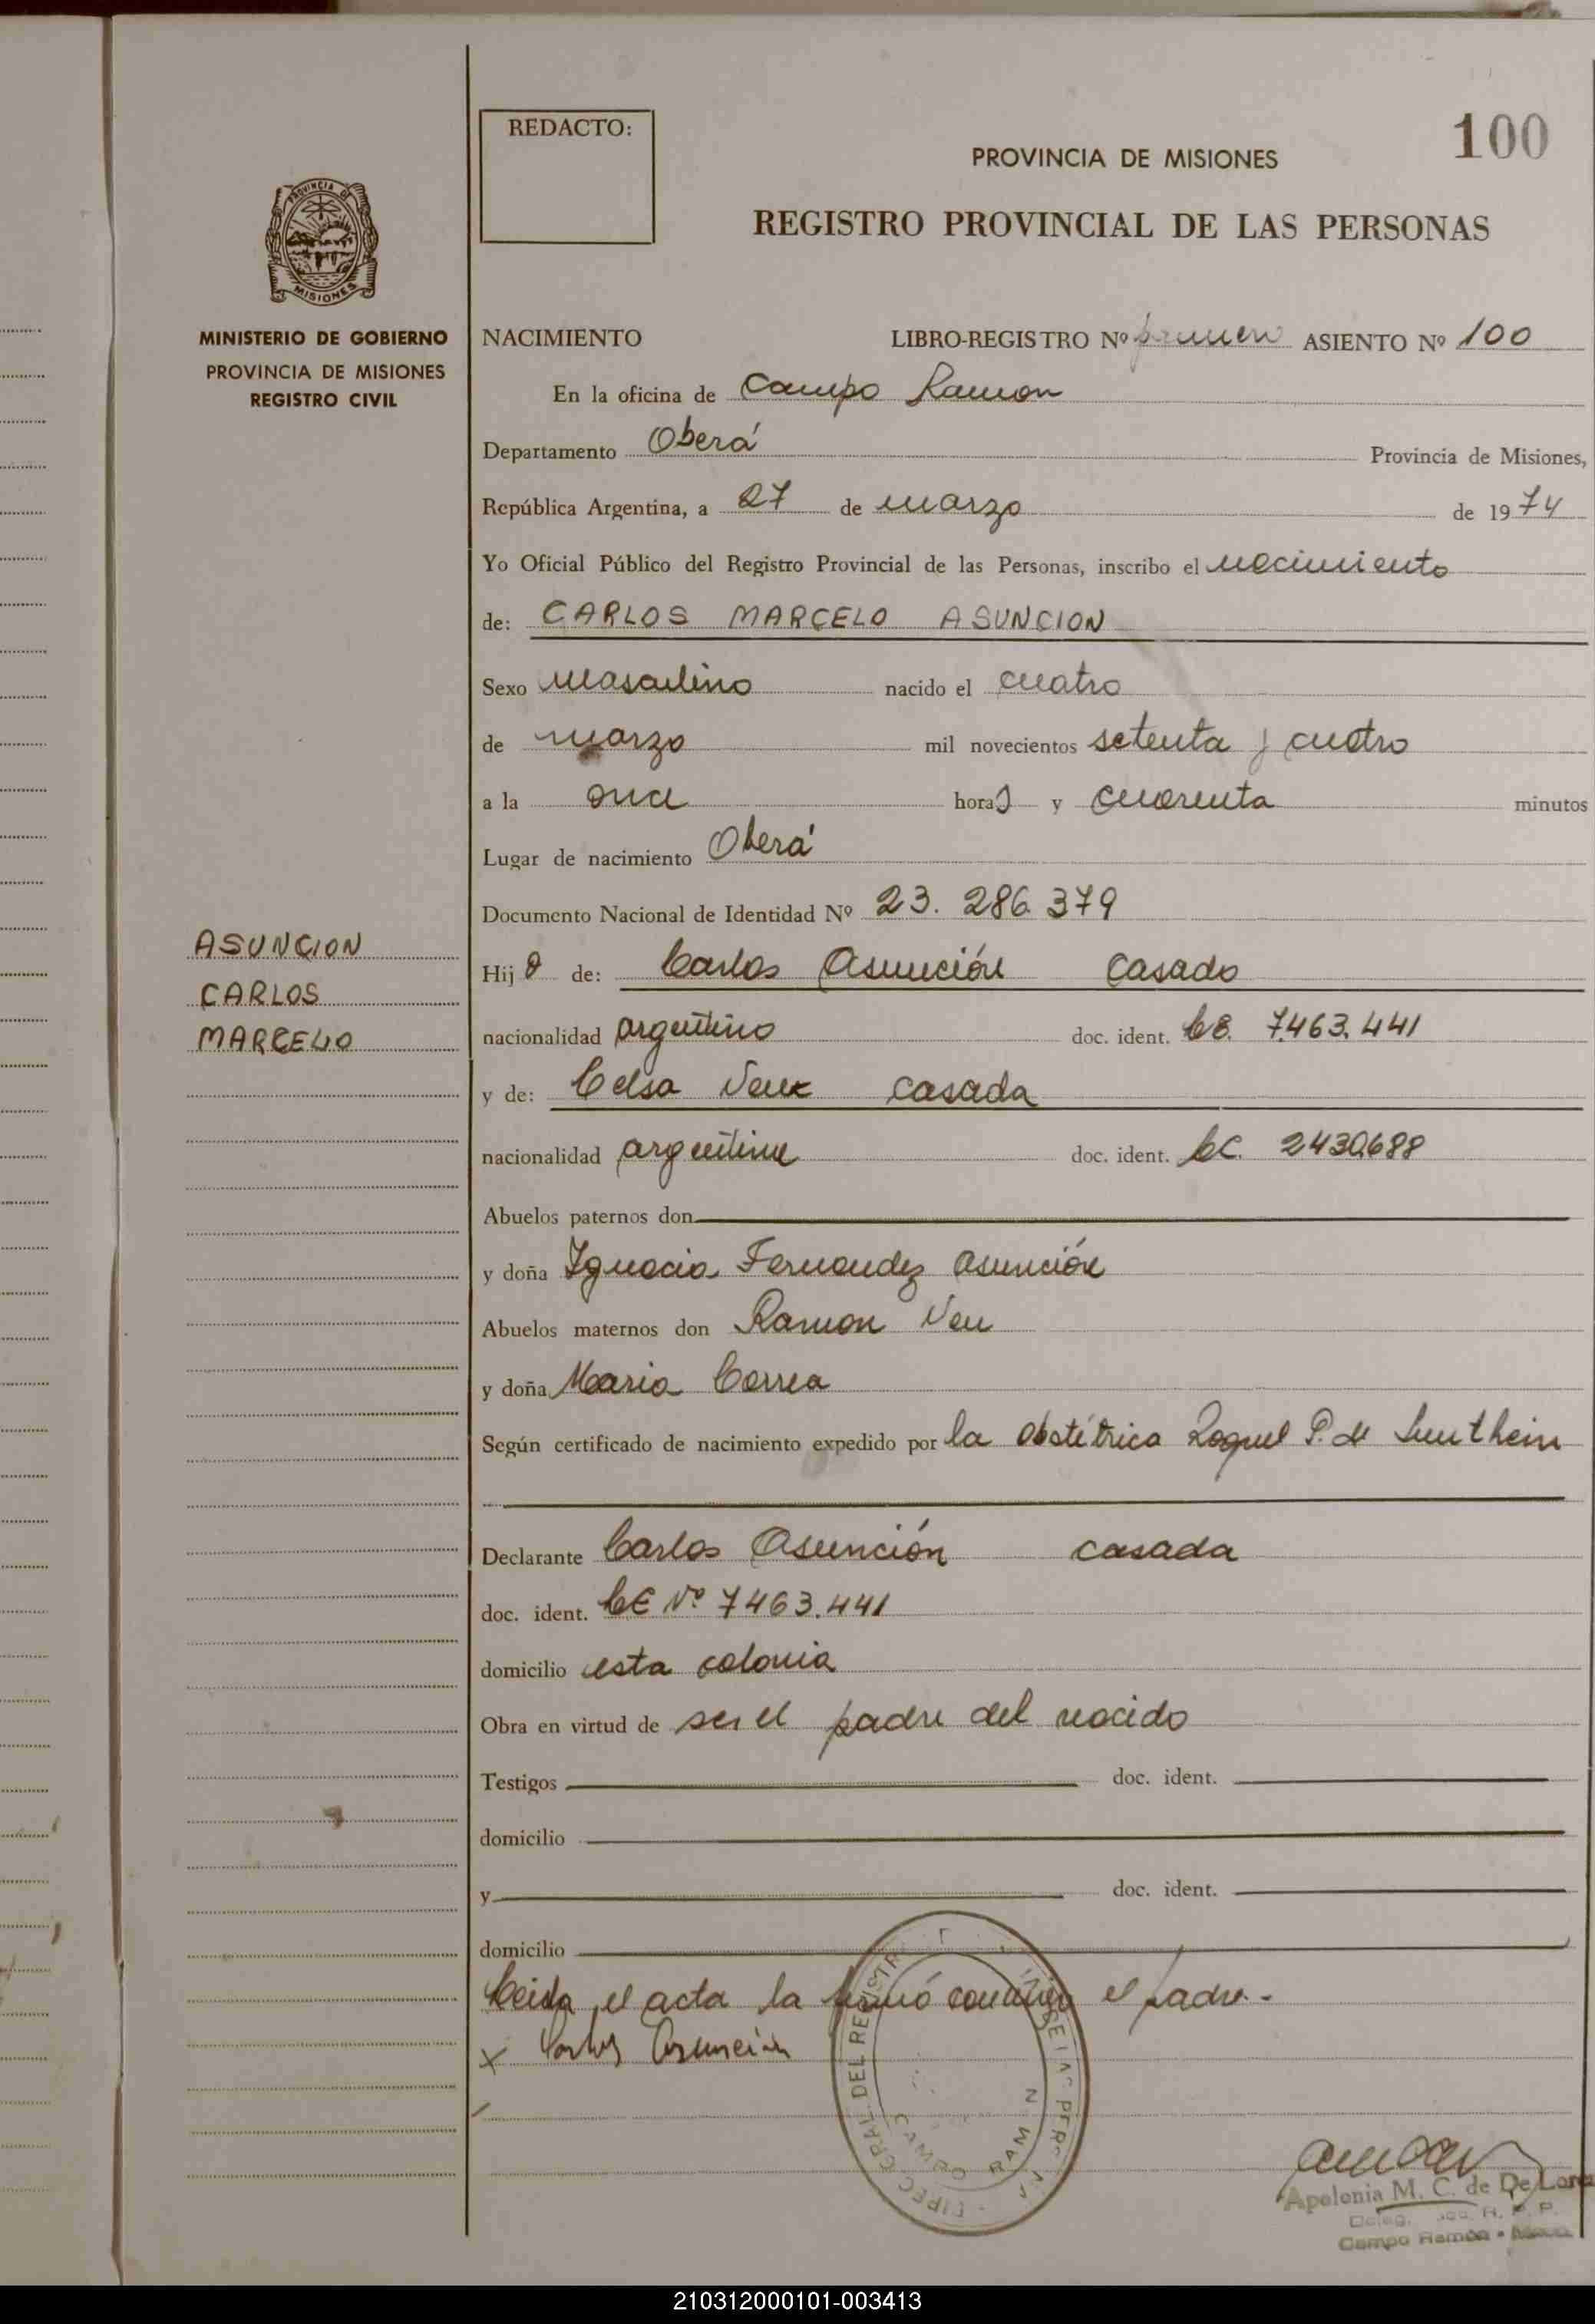 REDACTO:
100
PROVINCIA DE MISIONES
REGISTRO PROVINCIAL DE LAS PERSONAS
PROVINCIA DE
MISIONES
MINISTERIO DE GOBIERNO
PROVINCIA DE MISIONES
REGISTRO CIVIL
NACIMIENTO LIBRO-REGISTRO Nº ASIENTO Nº 100
En la oficina de Campo Ramon
Departamento Oberá Provincia de Misiones,
República Argentina, a 27 de marzo de 1974
Yo Oficial Público del Registro Provincial de las Personas, inscribo el nacimiento
de: CARLOS MARCELO ASUNCION
Sexo masculino nacido el cuatro
de marzo mil novecientos setenta y cuatro
a la once horas y cuarenta minutos
Lugar de nacimiento Oberá
Documento Nacional de Identidad Nº 23.286.379
ASUNCION
CARLOS
MARCELO
Hijo de: Carlos Asunción casado
nacionalidad argentino doc. ident. 7.463.441
y de: Celsa casada
nacionalidad argentina doc. ident. 2430688
Abuelos paternos don
y doña Ignacia Fernandez Asunción
Abuelos maternos don Ramon
y doña Maria Correa
Según certificado de nacimiento expedido por la obstétrica Raquel P. de
Declarante Carlos Asunción casada
doc. ident. Nº 7463.441
domicilio esta colonia
Obra en virtud de ser el padre del nacido
Testigos doc. ident.
domicilio
y doc. ident.
domicilio
Leida el acta la firmó conmigo el padre.-
x Carlos Asunción
GRAL. DEL REGISTR
CAMPO RAM N
Apolonia M. C. de De
Deleg. R. P. P.
Campo Ramón -
210312000101-003413